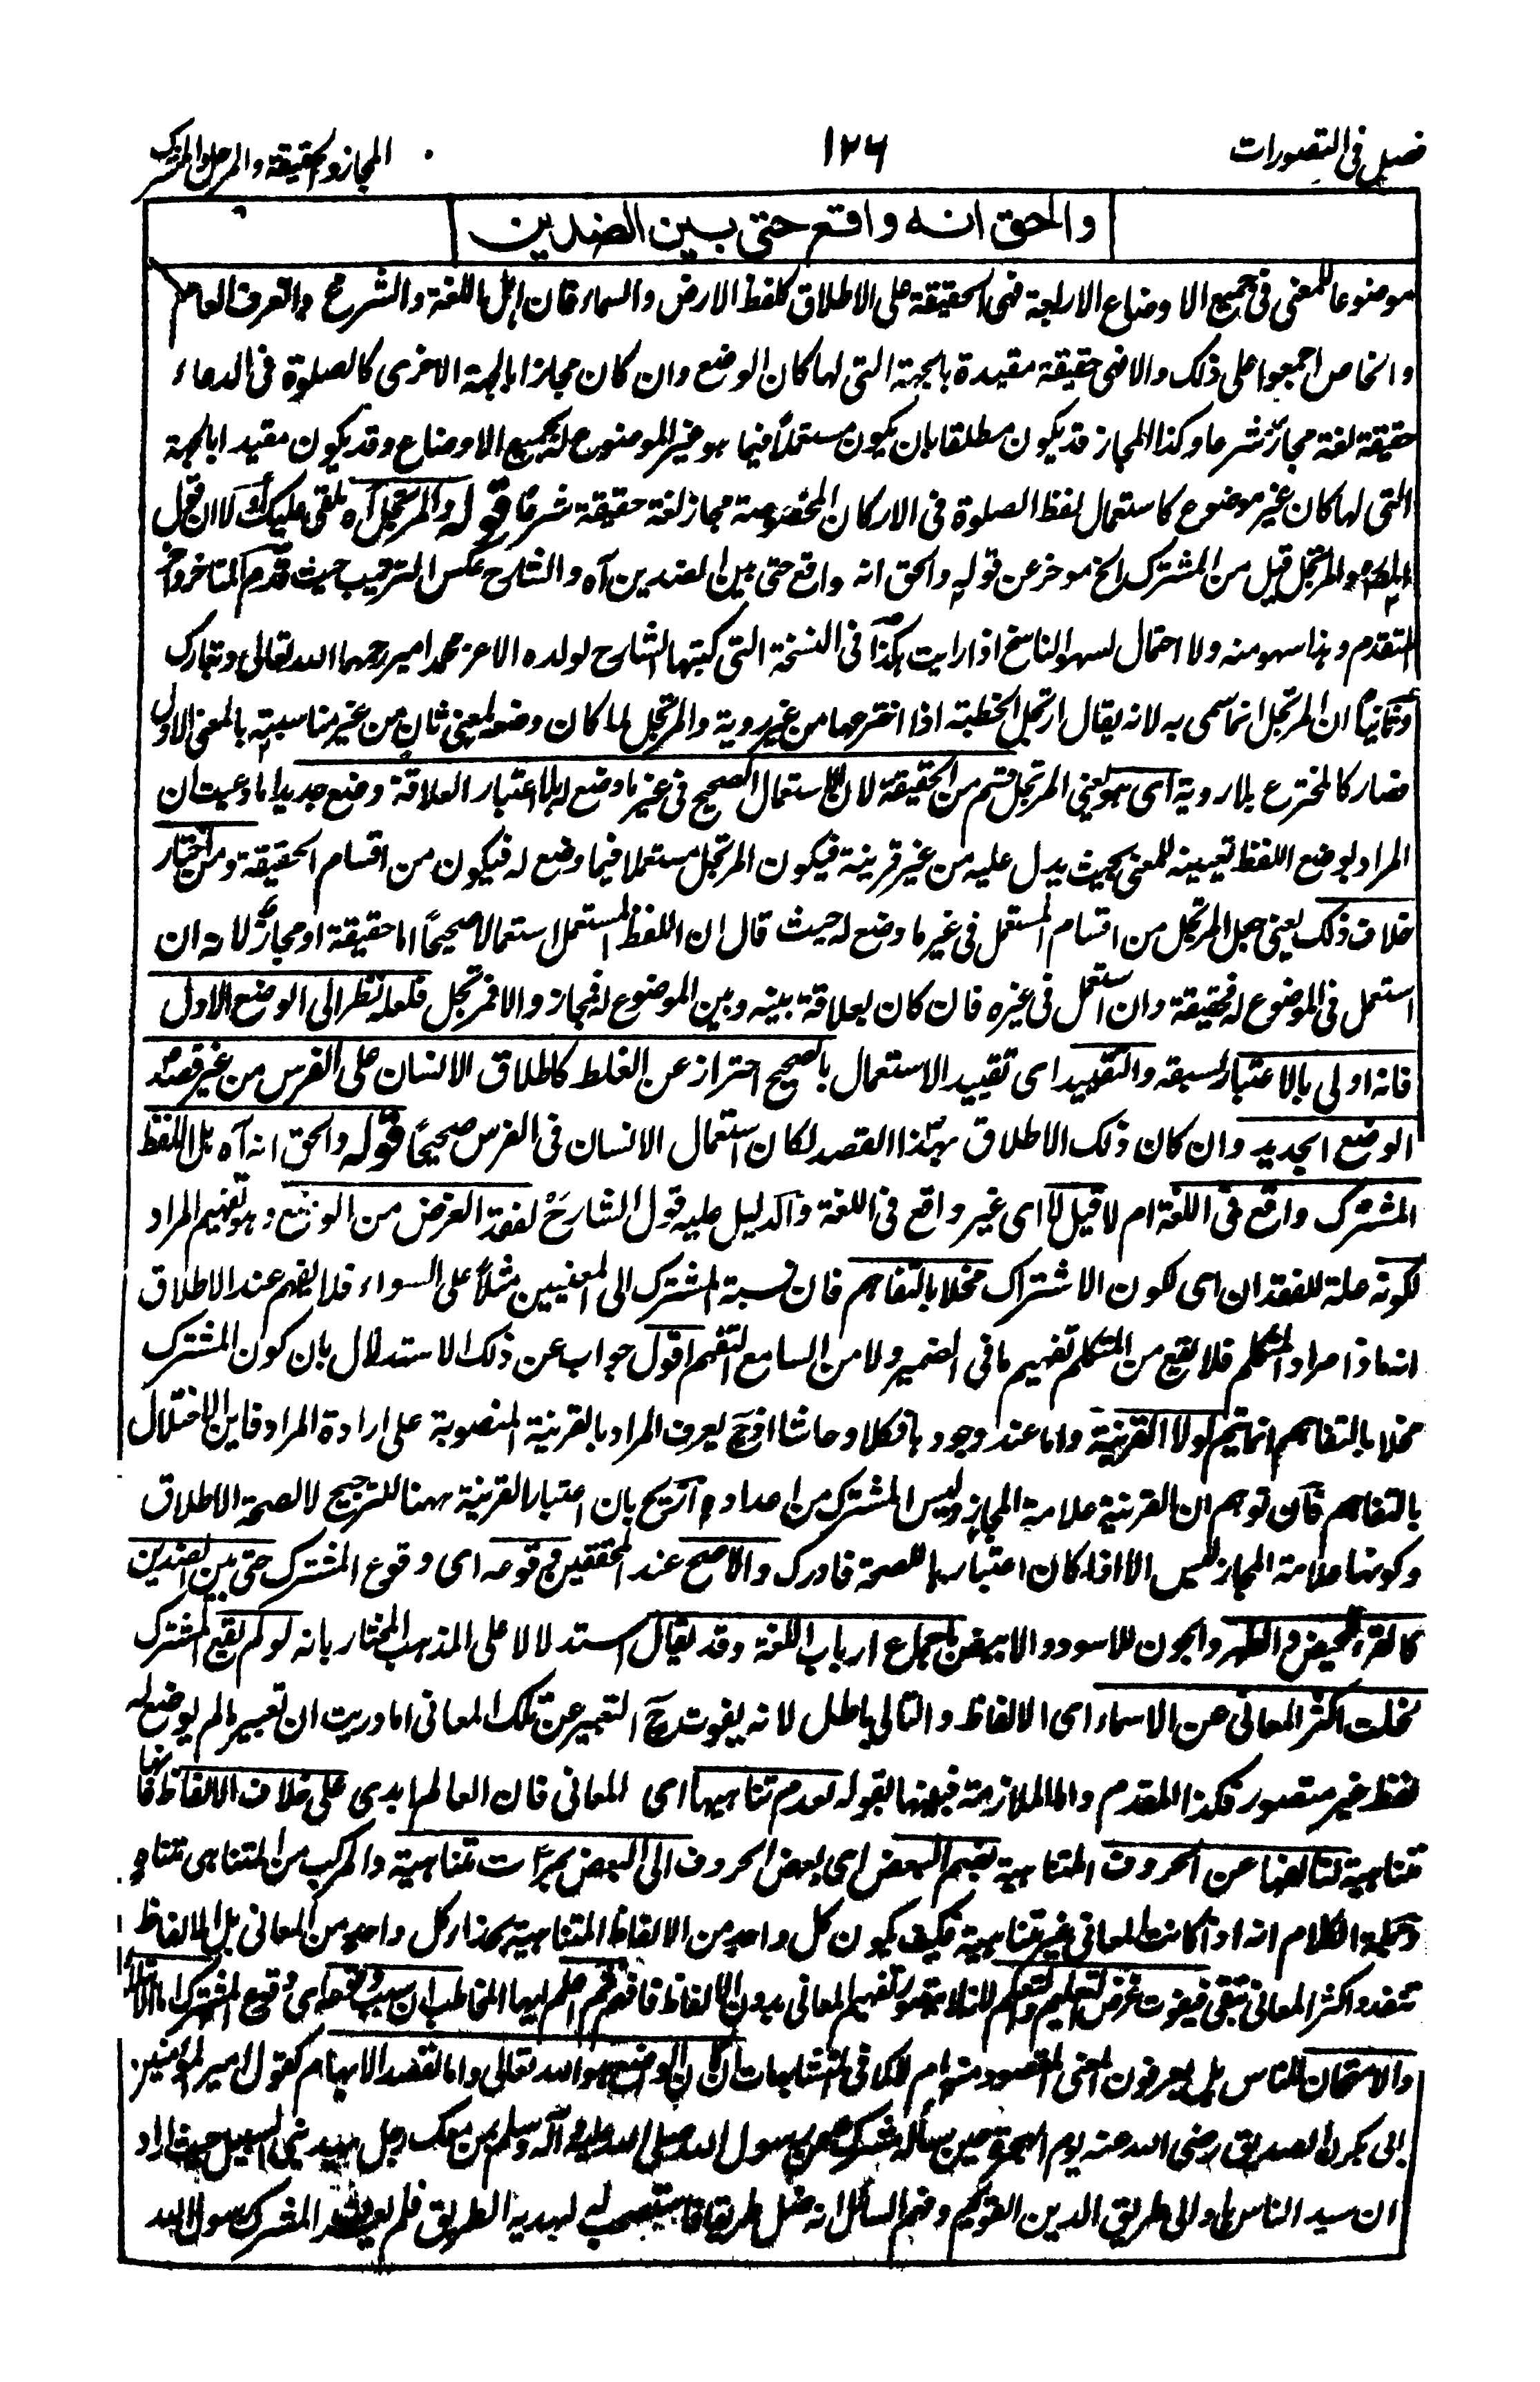 فصل فى التصورات
١٢٦
المجاز والحقيقة والمرتجل والمشترك
والحق انه واقع حتى بين الضدين
موضوعا للمعنى فى جميع الاوضاع الاربعة فهى الحقيقة على الاطلاق كلفظ الارض والسماء فان اهل اللغة والشرع والعرف العام
والخاص اجمعوا على ذلك والا فهى حقيقة مقيدة بالجهة التى لها كان الوضع وان كان مجازا بالجهة الاخرى كالصلوة فى الدعاء
حقيقة لغة مجاز شرعا وكذا المجاز قد يكون مطلقا بان يكون مستعملا فيما هو غير الموضوع له بجميع الاوضاع وقد يكون مقيدا بالجهة
التى لها كان غير موضوع كاستعمال لفظ الصلوة فى الاركان المخصوصة مجاز لغة حقيقة شرعا قوله والمرتجل آه يلقى عليك اولا ان قول
المصنف والمرتجل قيل من المشترك الخ موخر عن قوله والحق انه واقع حتى بين الضدين آه والشارح عكس الترتيب حيث قدم المتاخر واخر
المتقدم وهذا سهو منه ولا احتمال لسهو الناسخ اذ رايت هكذا فى النسخة التى كتبها الشارح لولده الاعز محمد امير رحمهما الله تعالى وتبارك
وثانيا ان المرتجل انما سمى به لانه يقال ارتجل الخطبة اذا اخترعها من غير روية والمرتجل لما كان وضعه لمعنى ثان من غير مناسبة بالمعنى الاول
فصار كالمخترع بلا روية اى هو يعنى المرتجل قسم من الحقيقة لان الاستعمال الصحيح فى غير ما وضع له بلا اعتبار العلاقة وضع جديد اما دريت ان
المراد بوضع اللفظ تعيينه للمعنى بحيث يدل عليه من غير قرينة فيكون المرتجل مستعملا فيما وضع له فيكون من اقسام الحقيقة ومن اختار
خلاف ذلك يعنى جعل المرتجل من اقسام المستعمل فى غير ما وضع له حيث قال ان اللفظ المستعمل استعمالا صحيحا اما حقيقة او مجاز لانه ان
استعمل فى الموضوع له فحقيقة وان استعمل فى غيره فان كان بعلاقة بينه وبين الموضوع له فمجاز والا فمرتجل فلعله نظر الى الوضع الاول
فانه اولى بالاعتبار لسبقه والتقييد اى تقييد الاستعمال بالصحيح احتراز عن الغلط كاطلاق الانسان على الفرس من غير قصد
الوضع الجديد وان كان ذلك الاطلاق بهذا القصد لكان استعمال الانسان فى الفرس صحيحا قوله والحق انه آه هل اللفظ
المشترك واقع فى اللغة ام لا قيل لا اى غير واقع فى اللغة والدليل عليه قول الشارح لفقد الغرض من الوضع وهو تفهيم المراد
لكونه علة للفقدان اى لكون الاشتراك مخلا بالتفاهم فان نسبة المشترك الى المعنيين مثلا على السواء فلا يفهم عند الاطلاق
انه ماذا مراد المتكلم فلا يقع من المتكلم تفهيم ما فى الضمير ولا من السامع التفهم اقول جواب عن ذلك الاستدلال بان كون المشترك
مخلا بالتفاهم انما يتم لولا القرينة واما عند وجودها فكلا وحاشا اذ ح يعرف المراد بالقرينة المنصوبة على ارادة المراد فاين الاختلال
بالتفاهم فان توهم ان القرينة علامة المجاز وليس المشترك من اعداده ازيح بان اعتبار القرينة ههنا للترجيح لا لصحة الاطلاق
وكونها علامة المجاز ليس الا اذا كان اعتبارها للصحة فادرك والاصح عند المحققين وقوعه اى وقوع المشترك حتى بين الضدين
كالقرء للحيض والطهر والجون للاسود والابيض باجماع ارباب اللغة وقد يقال استدلالا على المذهب المختار بانه لو لم يقع المشترك
لخلت اكثر المعانى عن الاسماء اى الالفاظ والتالى باطل لانه يفوت ح التعبير عن تلك المعانى اما دريت ان تعبير ما لم يوضع له
لفظ غير متصور فكذا المقدم واما الملازمة فبينها بقوله لعدم تناهيها اى المعانى فان العالم ابدى على خلاف الالفاظ فانها
متناهية لتالفها عن الحروف المتناهية بضم البعض اى بعض الحروف الى البعض بمرات متناهية والمركب من المتناهى متناه
الكلام انه اذا كانت المعانى غير متناهية فكيف يكون كل واحد من الالفاظ المتناهية بحذاء كل واحد من المعانى بل الالفاظ
تنفد واكثر المعانى تبقى فيفوت غرض التعليم والتعلم اذ لا يتصور تفهيم المعانى بدون الالفاظ فافهم ثم اعلم ايها المخاطب ان سبب وقوعه اى وقوع المشترك اما الابتلاء
والامتحان للناس هل يعرفون المعنى المقصود منه ام لا كما فى المتشابهات ان كان الواضع هو الله تعالى واما لقصد الابهام كقول امير المؤمنين
ابى بكر الصديق رضى الله عنه يوم الهجرة حين ساله مشرك عن رسول الله صلى الله عليه وآله وسلم من معك رجل يهدينى السبيل حيث اراد
ان سيد الناس هاد الى طريق الدين القويم وفهم السائل انه ضل طريقا فاستصحبه ليهديه الطريق فلم المشرك رسول الله